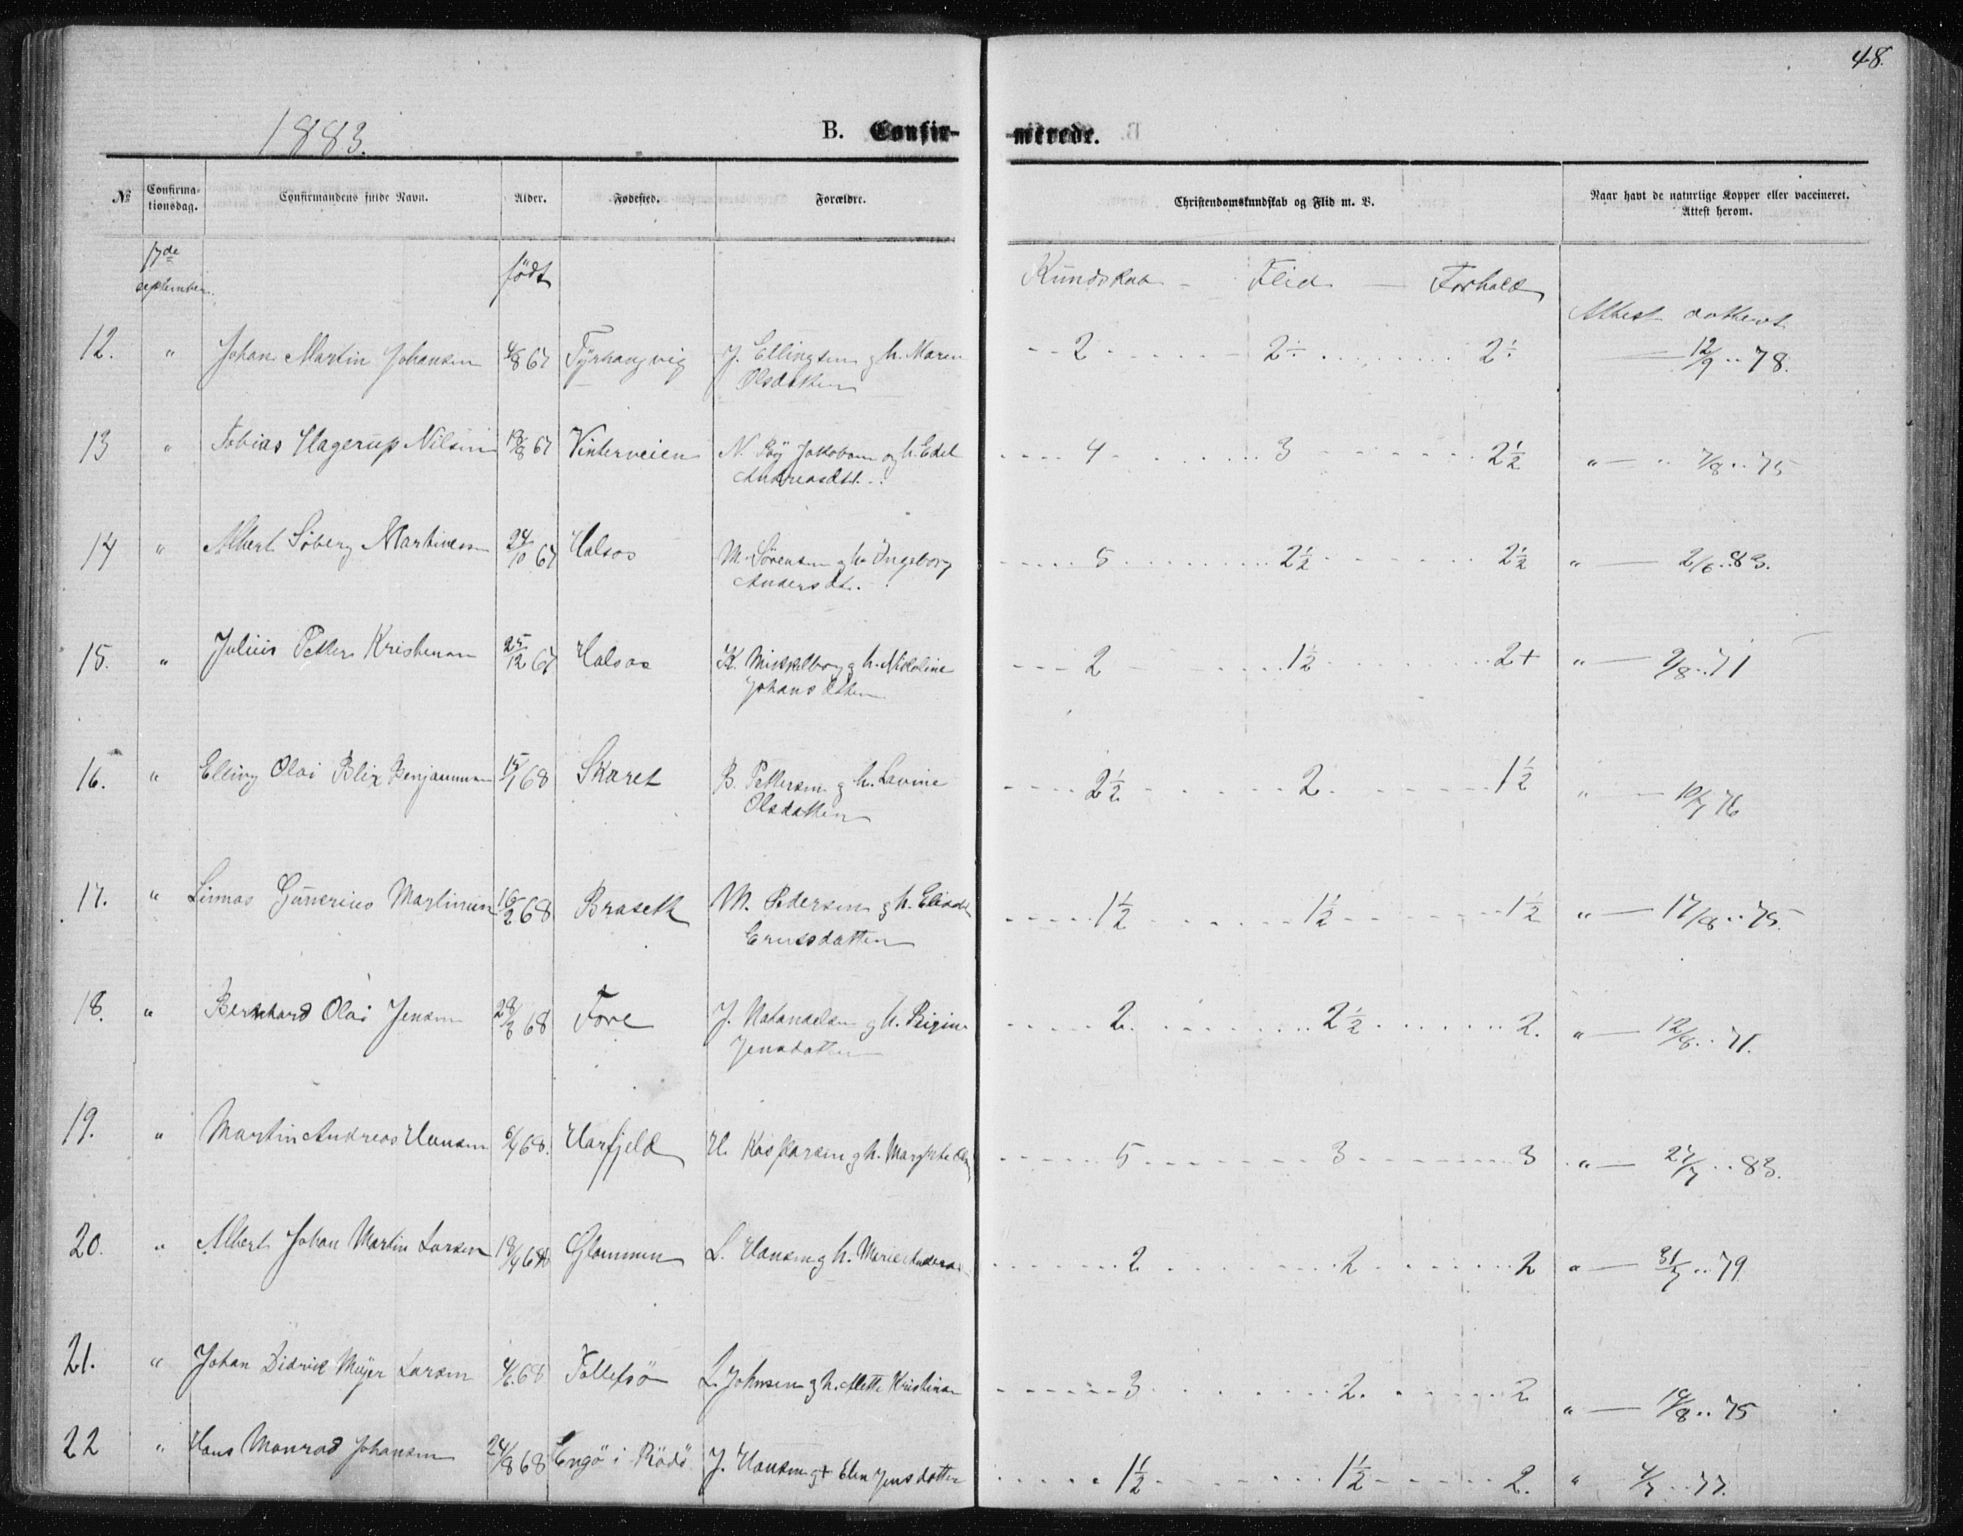 48.
1883.
B. Confir- merede.
№ Confirma-tionsdag. Confirmandens fulde Navn. Alder. Fødested. Forældre. Christendomskundskab og Flid m. V. Naar havt de naturlige Kopper eller vaccineret. Attest herom.
17de september født Kundskab - Flid - Forhold Attest datteret
12. " Johan Martin Johansen 4/8 67 J. Ellingsen og h. Maren Olsdatter 2 2÷ 2÷ — 12/9 .. 78.
13 " Tobias Hagerup Nilsen 19/8 67 Vinterveien N. Jakobsen og h. Edel Andreasdtt. 4 3 2½ " — 7/8 .. 75
14 " Albert Søberg Martinessen 24/10 67 Halsos M. Sörensen og h. Ingeborg Andersdt. 5 2½ 2½ " — 2/6 .. 83.
15. " Julius Petter Kristensen 25/12 67 Halsos K. Mikkelborg og h. Nikoline Johansdatter 2 1½ 2+ " — 9/8 .. 71
16. " Elling Olai Blix Benjaminsen 15/1 68 Skaret B. Pettersen og h. Lavine Olsdatter 2½ 2 1½ " — 10/7 76
17. " Linnas Gunerius Martinsen 16/2 68 Braseth M. Pedersen og h. 1½ 1½ 1½ " — 17/8 .. 75.
18. " Bernhard Olai Jensen 68 Fore J. Natanaelsen og h. Jensdatter 2. 2½ 2. " — 12/8 .. 71.
19. " Martin Andreas Hansen 6/4 68. Harfjeld H. Kaspersen og h. 5 3 3 " — 27/7 .. 83.
20. " Albert Johan Martin Larsen 18/4 68 Glommen L. Hansen og h. 2 2 2 " — 31/7 .. 79
21. " Johan Didrik Meyer Larsen 4/6. 68 L. Johnsen og h. Mette Kristina 3 2. 2 " — 14/8 .. 75
22 " Hans Monrad Johansen 24/8 68 Engö i Rödö J. Hansen og + Elen Jensdatter 1½ 1½ 2. " .. 77.